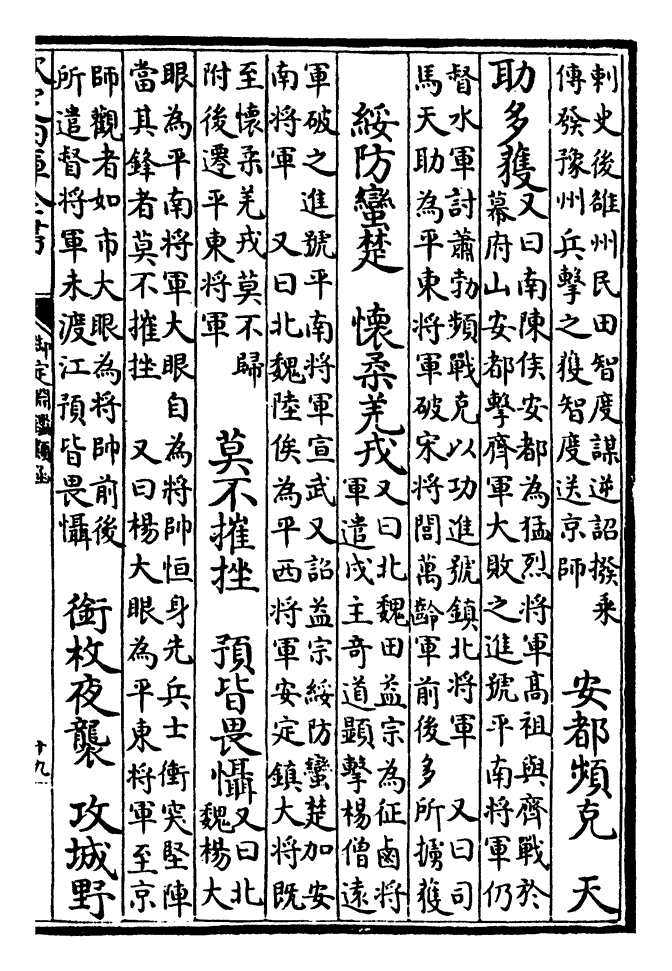 刺史後雒州民田智度謀逆詔撥乗
傳發豫州兵擊之獲智度送京師
安都頻克　天
助多獲
又曰南陳侯安都為猛烈將軍高祖與齊戰於
幕府山安都擊齊軍大敗之進號平南將軍仍
督水軍討蕭勃頻戰克以功進號鎮北將軍　又曰司
馬天助為平東將軍破宋將閻萬齡軍前後多所擄獲
綏防蠻楚　懷柔羌戎
又曰北魏田益宗為征鹵將
軍遣戍主奇道顯擊楊僧遠
軍破之進號平南將軍宣武又詔益宗綏防蠻楚加安
南將軍　又曰北魏陸俟為平西將軍安定鎮大將既
至懷柔羌戎莫不歸
附後遷平東將軍
莫不摧挫　預皆畏懾
又曰北
魏楊大
眼為平南將軍大眼自為將帥恒身先兵士衝突堅陣
當其鋒者莫不摧挫　又曰楊大眼為平東將軍至京
師觀者如市大眼為將帥前後
所遣督將軍未渡江預皆畏懾
銜枚夜襲　攻城野
欽定四庫全書
御定淵鑑類函
廿九